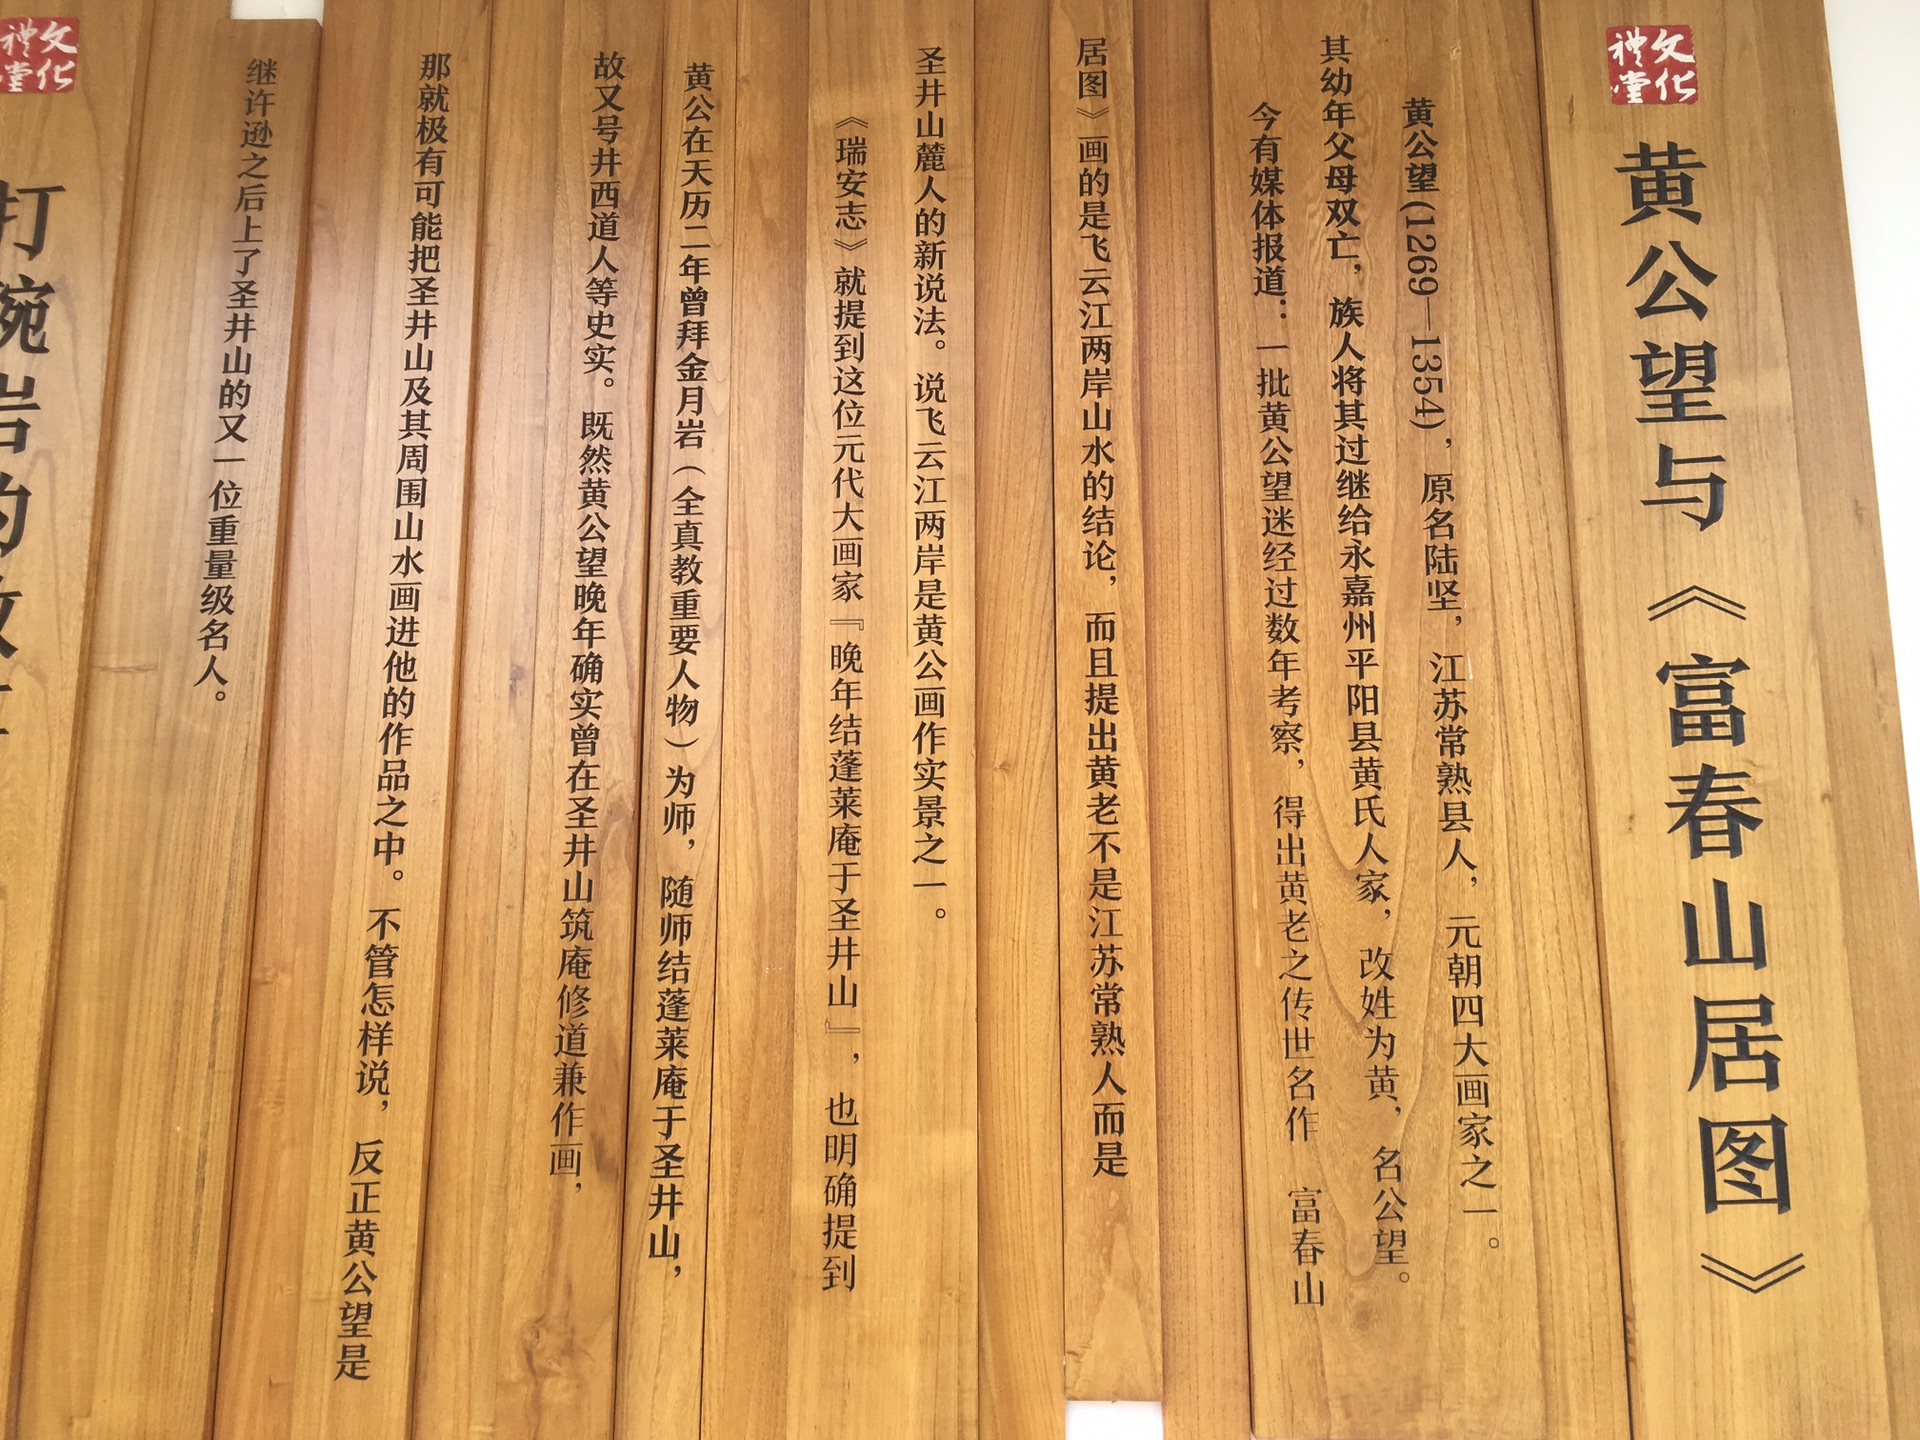 文化
禮堂
黄公望与《富春山居图》
黄公望(1269—1354)，原名陆坚，江苏常熟县人，元朝四大画家之一。
其幼年父母双亡，族人将其过继给永嘉州平阳县黄氏人家，改姓为黄，名公望。
今有媒体报道：一批黄公望迷经过数年考察，得出黄老之传世名作 富春山
居图》画的是飞云江两岸山水的结论，而且提出黄老不是江苏常熟人而是
圣井山麓人的新说法。说飞云江两岸是黄公画作实景之一。
《瑞安志》就提到这位元代大画家『晚年结蓬莱庵于圣井山』，也明确提到
黄公在天历二年曾拜金月岩（全真教重要人物）为师，随师结蓬莱庵于圣井山，
故又号井西道人等史实。既然黄公望晚年确实曾在圣井山筑庵修道兼作画，
那就极有可能把圣井山及其周围山水画进他的作品之中。不管怎样说，反正黄公望是
继许逊之后上了圣井山的又一位重量级名人。
文化
禮堂
打碗岩的故事